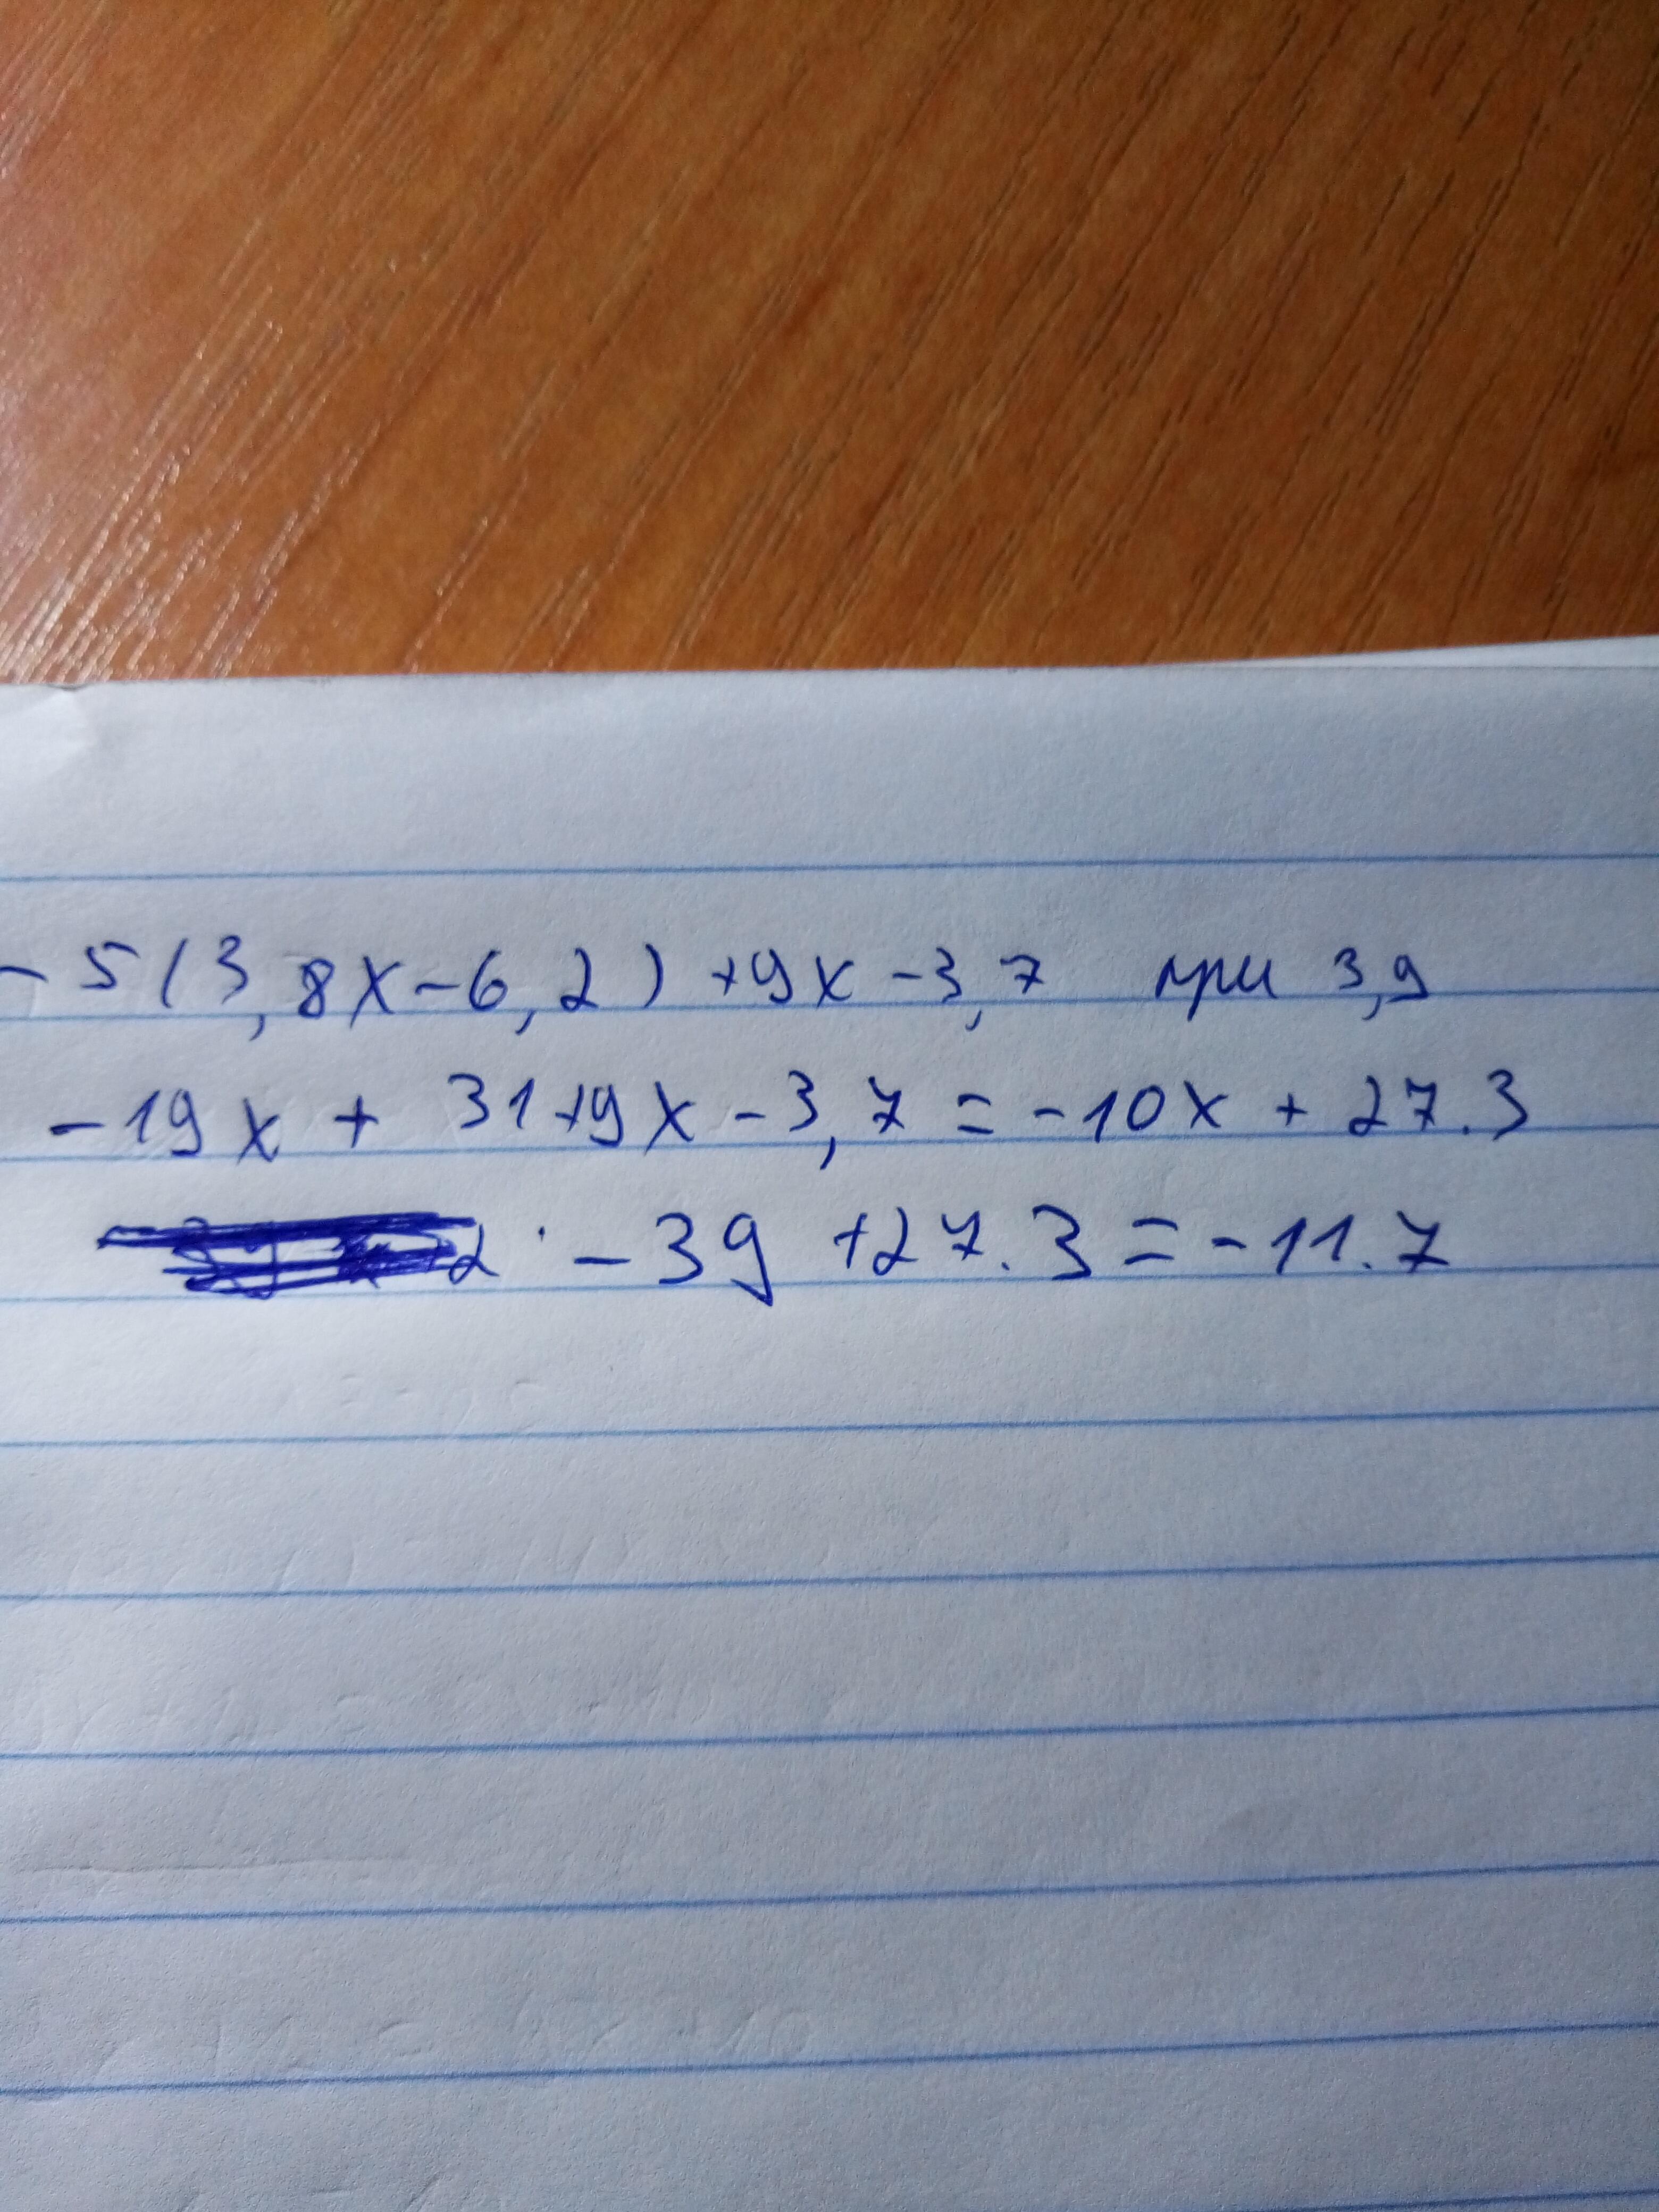 - 5(3,8x-6,2) +9x -3,7 при 3,9
-19x + 31+9x - 3,7 = -10x + 27.3
-39 +27.3 = -11.7